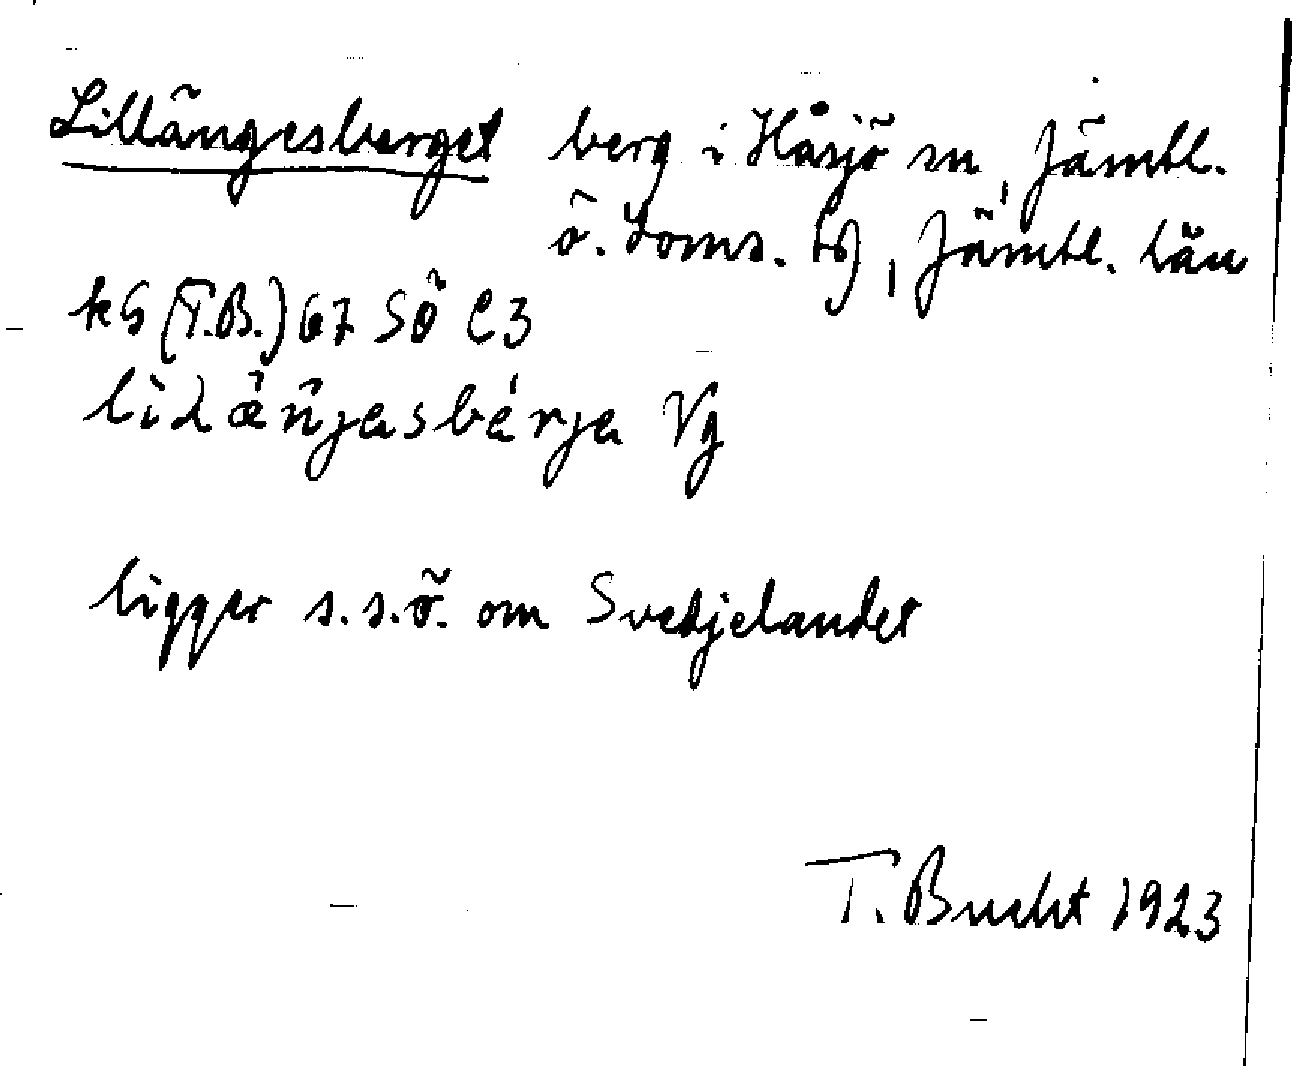 Lillängesberget berg i Håsjö sn, Jämtl.
ö. doms. tg, Jämtl. län
ks (T.B.) 67 SÖ C3
ligger s.s.ö. om Svedjelandet
T. Bucht 1923